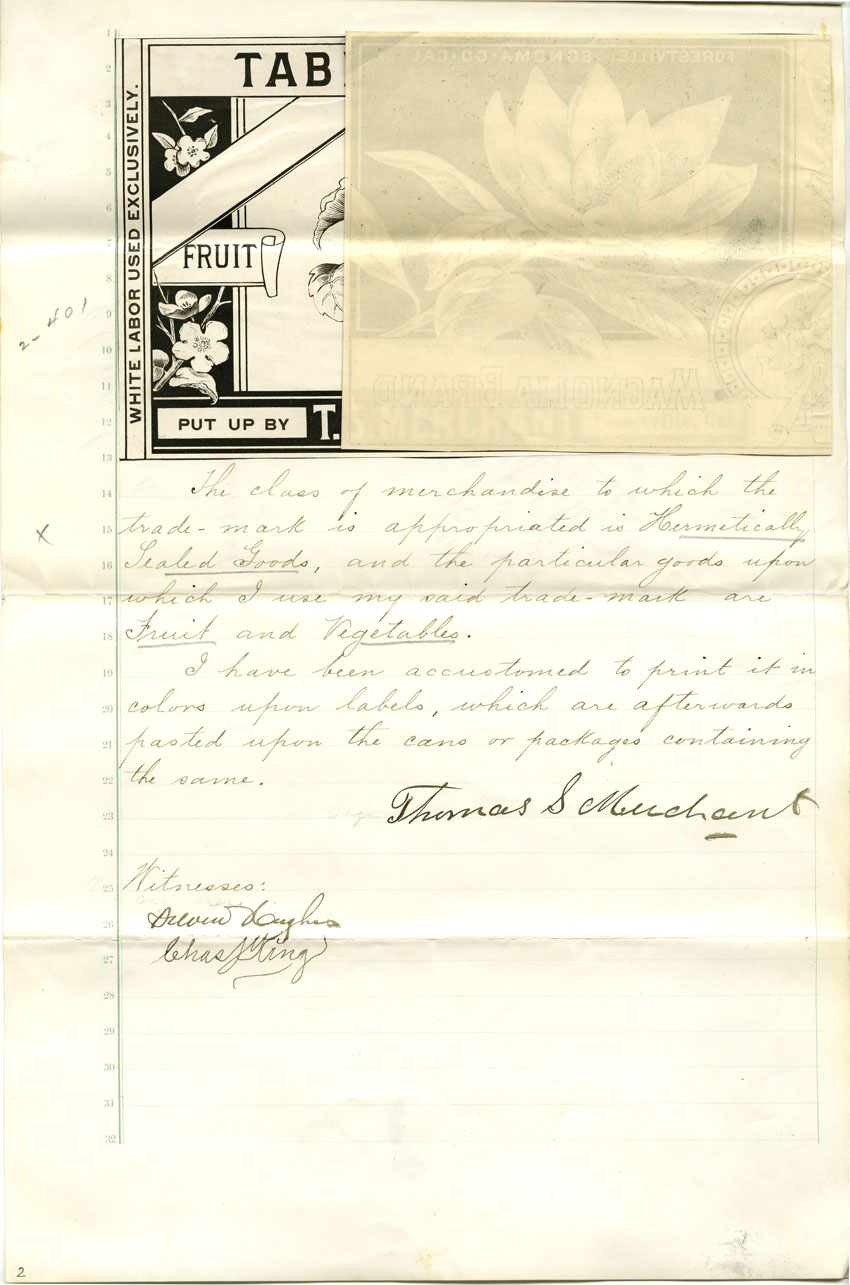 TAB
FORESTVILLE, SONOMA CO. CAL
WHITE LABOR USED EXCLUSIVELY.
FRUIT
2-401
MAGNOLIA BRAND
PUT UP BY T.
The class of merchandise to which the
X
trade-mark is appropriated is Hermetically
Sealed Goods, and the particular goods upon
which I use my said trade-mark are
Fruit and Vegetables.
I have been accustomed to print it in
colors upon labels, which are afterwards
pasted upon the cans or packages containing
the same.
Thomas S Merchant
Witnesses:
Hughes
Chas J King
1
2
3
4
5
6
7
8
9
10
11
12
13
14
15
16
17
18
19
20
21
22
23
24
25
26
27
28
29
30
31
32
2